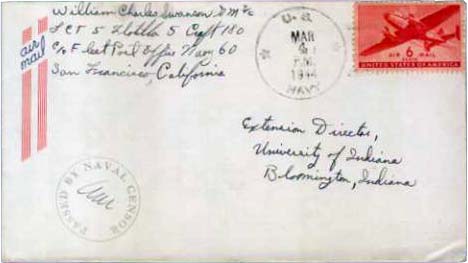 William Charles Swanson
LCT 5 5 180
c/o Fleet Post Office Navy 60
San Francisco, California
air
mail
U.S.
MAR
P.M.
1944
NAVY
AIR 6 MAIL
CENTS
UNITED STATES OF AMERICA
Extension Director,
University of Indiana
Bloomington, Indiana
PASSED BY NAVAL CENSOR